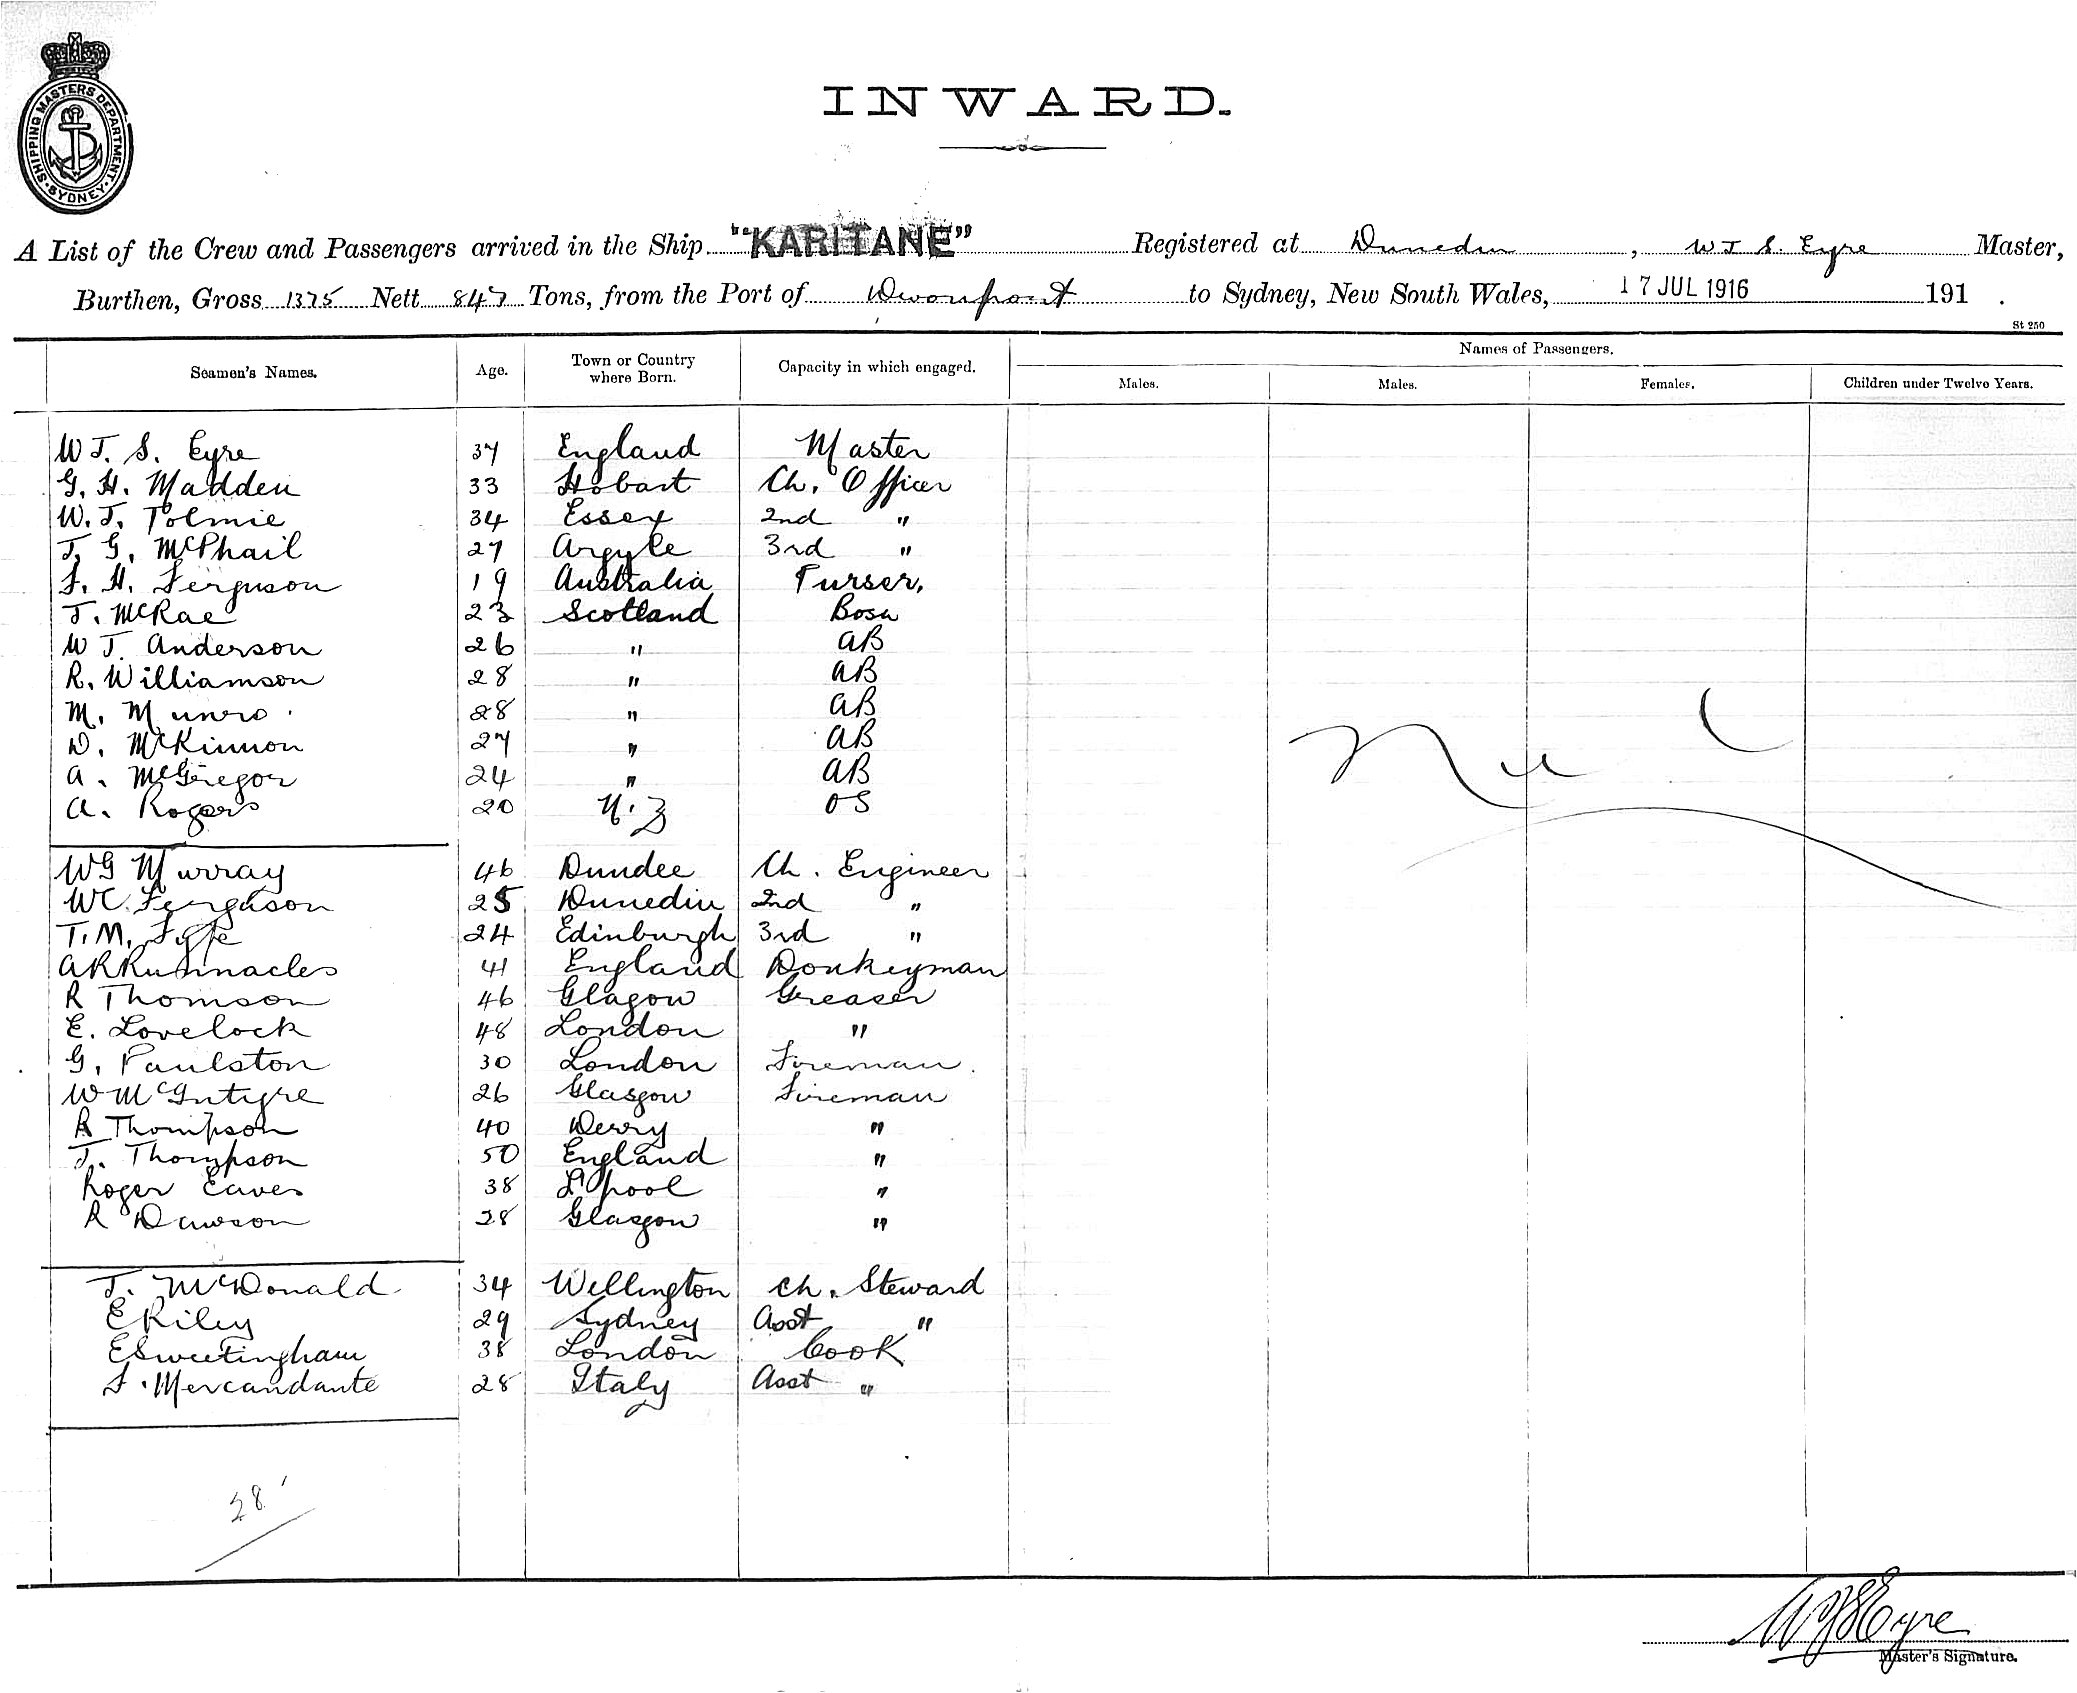 SHIPPING MASTERS DEPARTMENT. SYDNEY
INWARD.
A List of the Crew and Passengers arrived in the Ship "KARITANE" Registered at Dunedin, W J S. Eyre Master,
Burthen, Gross 1375 Nett 847 Tons, from the Port of Devonport to Sydney, New South Wales, 17 JUL 1916 191 .
St 250
Seamen's Names. Age. Town or Country where Born. Capacity in which engaged. Names of Passengers.
Males. Males. Females. Children under Twelve Years.
W J. S. Eyre 37 England Master
G. H. Madden 33 Hobart Ch. Officer
W. J. Tolmie 34 Essex 2nd "
J. G. McPhail 27 Argyle 3rd "
F. H. Ferguson 19 Australia Purser.
J. McRae 23 Scotland Bosn
W J. Anderson 26 " AB
R. Williamson 28 " AB
M. Munro 28 " AB
D. McKinnon 27 " AB
A. McGregor 24 " AB
A. Rogers 20 N.Z OS
Nil
WG Murray 46 Dundee Ch. Engineer
WC. Ferguson 25 Dunedin 2nd "
T. M. Fyfe 24 Edinburgh 3rd "
A R Runnacles 41 England Donkeyman
R Thomson 46 Glagow Greaser
E. Lovelock 48 London "
G. Paulston 30 London Fireman.
W McIntyre 26 Glasgow Fireman
R Thompson 40 Derry "
J. Thompson 50 England "
Roger Eaves 38 L'pool "
R Dawson 28 Glasgow "
J. McDonald 34 Wellington Ch. Steward
E Riley 29 Sydney Asst "
E Sweetingham 38 London Cook
F. Mercandante 28 Italy Asst "
28
WJSEyre
Master's Signature.